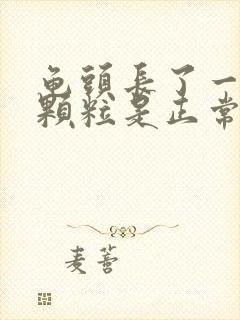 龟頭長了一
顆粒是正常
麦薈